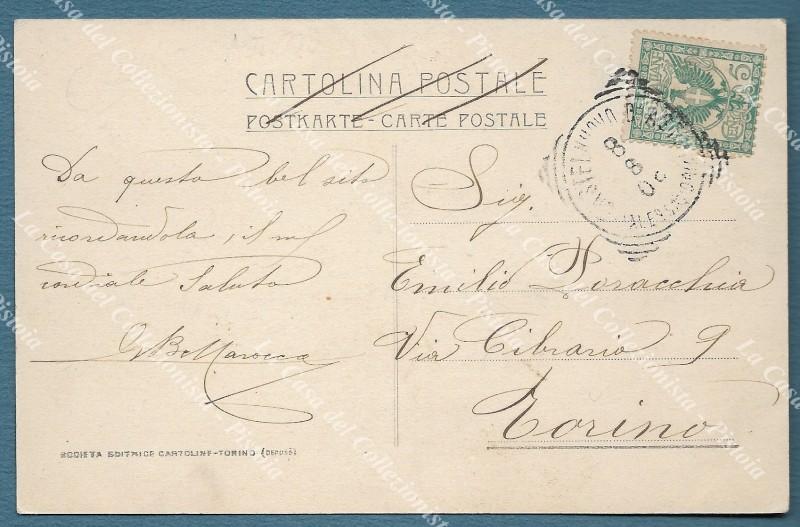 CARTOLINA POSTALE
POSTKARTE - CARTE POSTALE
Da questo bel sito
ricordandola, il
cordiale saluto
SOCIETA EDITRICE CARTOLINE - TORINO (DEPOSÉ)
5
CASTELNUOVO D'
ALESSANDRIA
8 8 06
Sig.
Emilio Soracchia
Via Cibrario 9
Torino
La Casa del Collezionista - Pistoia